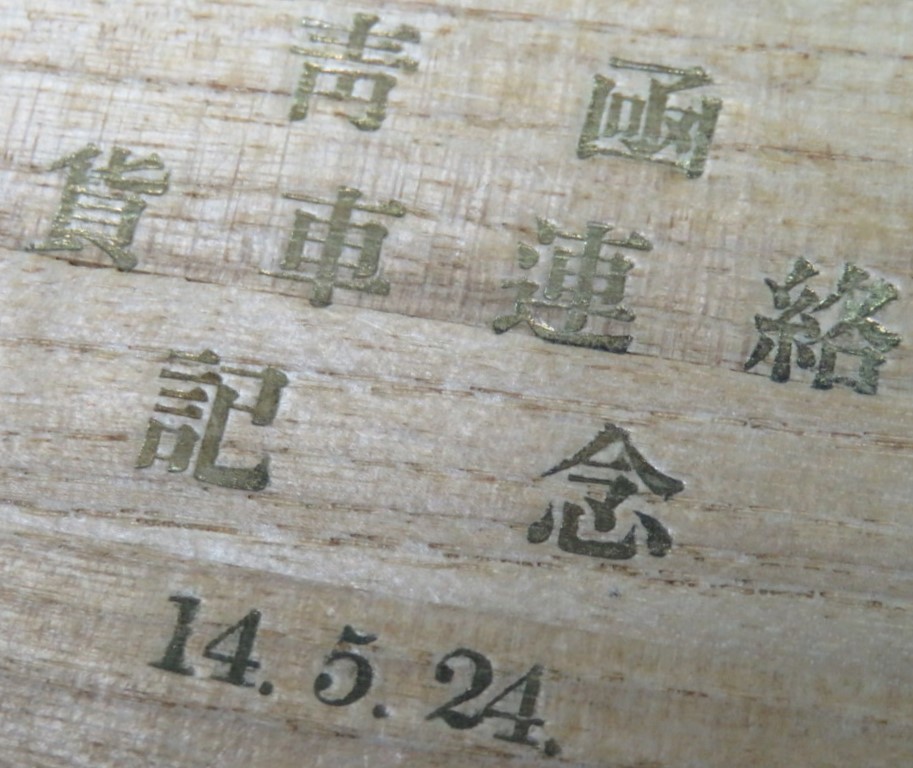 靑函
貨車連絡
記念
14.5.24.